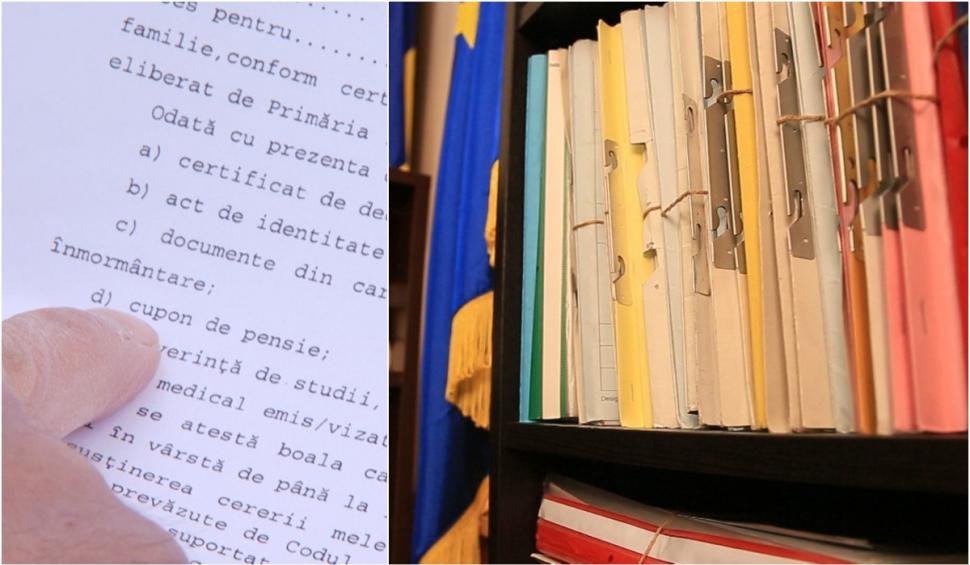 pentru..........
familie,conform cert
eliberat de Primăria
Odată cu prezenta
a) certificat de de
b) act de identitate
c) documente din car
înmormântare;
d) cupon de pensie;
verință de studii,
medical emis/vizat
se atestă boala ca
în vârstă de până la
susținerea cererii mele
prevăzute de Codul
suportat